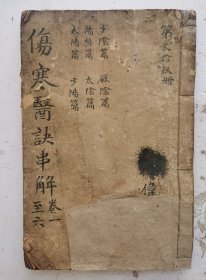 第貳拾玖冊
少陰篇 厥陰篇
陽明篇 太陰篇
太陽篇 少陽篇
傷寒醫訣串解
卷一
至六